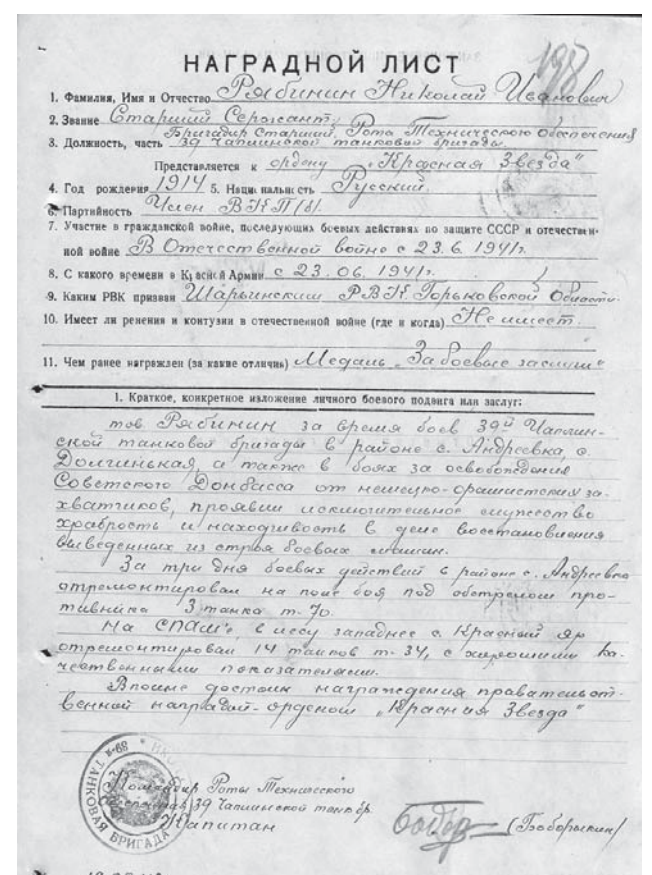 198
НАГРАДНОЙ ЛИСТ
1. Фамилия, Имя и Отчество Рябинин Николай Иванович
2. Звание Старший Сержант,
Бригадир Старший, Рота Технического Обеспечения
3. Должность, часть 39 Чаплинской танковой бригады.
Представляется к ордену „Красная Звезда"
4. Год рождения 1914 5. Национальность Русский.
6. Партийность Член ВКП/б/.
7. Участие в гражданской войне, последующих боевых действиях по защите СССР и отечествен-
ной войне В Отечественной войне с 23.6. 1941г.
8. С какого времени в Красной Армии с 23.06. 1941г.
9. Каким РВК призван Шарьинским РВК. Горьковской Области.
10. Имеет ли ренения и контузии в отечественной войне (где и когда) Не имеет.
11. Чем ранее награжден (за какие отличия) Медаль „За боевые заслуги"
1. Краткое, конкретное изложение личного боевого подвига или заслуг:
тов. Рябинин за время боев 39й Чаплин-
ской танковой бригады в районе с. Андреевка, с.
Долгинькая, а также в боях за освобождения
Советского Донбасса от немецко-фашистских за-
хватчиков, проявил исключительное мужество
храбрость и находчивость в деле восстановления
выведенных из строя боевых машин.
За три дня боевых действий в районе с. Андреевка
отремонтировал на поле боя под обстрелом про-
тивника 3 танка т-70.
На СПАМ'е, в лесу западнее с. Красный Яр
отремонтировал 14 танков т-34, с хорошими ка-
чественными показателями.
Вполне достоин награждения правательст-
венной наградой-орденом „Красная Звезда"
39-я ТАНКОВАЯ БРИГАДА
Командир Роты Технического
Обеспечения 39 Чаплинской танк. бр.
Капитан (Боборыкин)